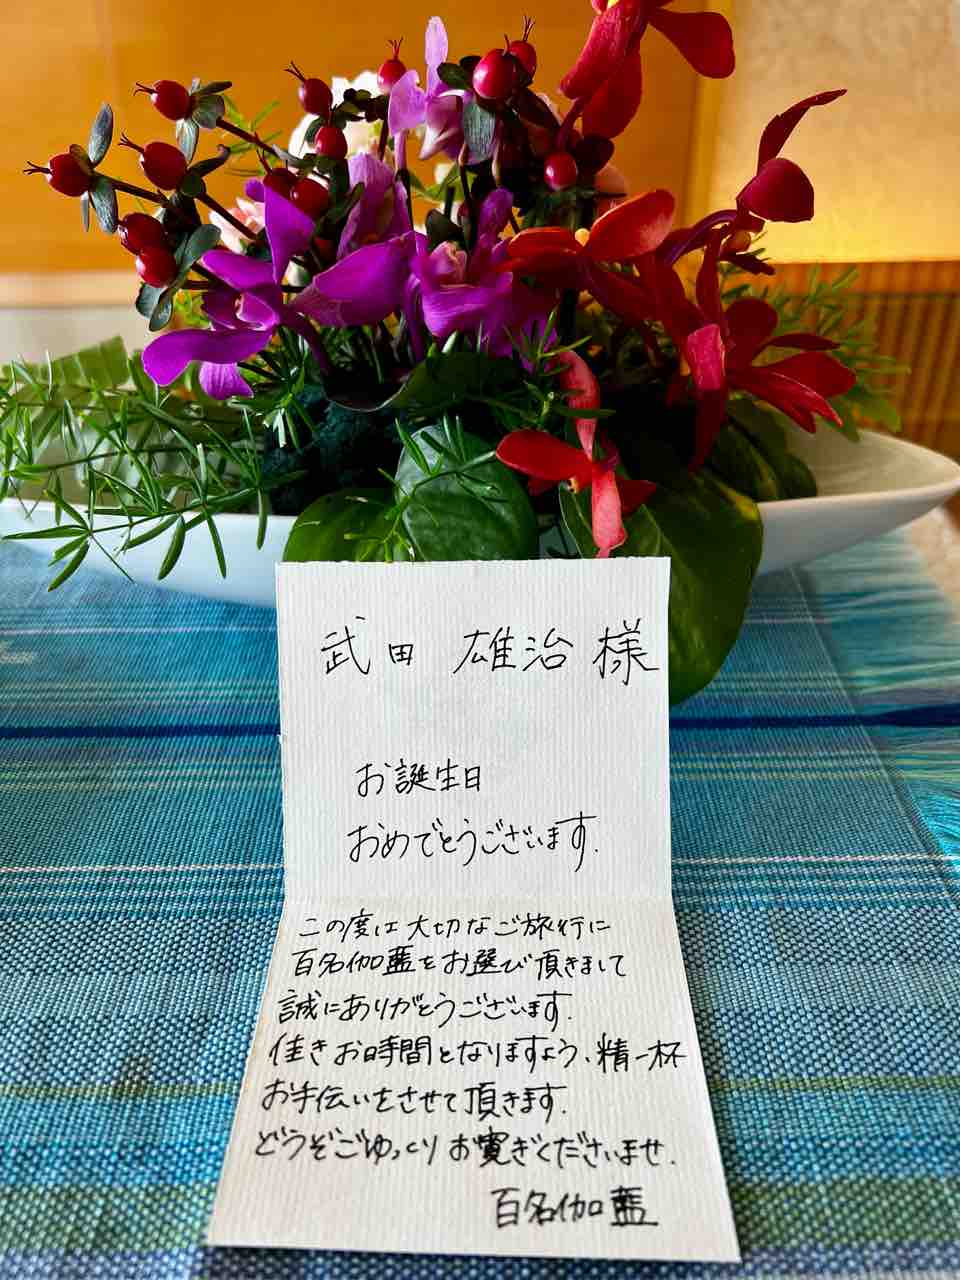 武田 雄治 様
お誕生日
おめでとうございます.
この度は大切なご旅行に
百名伽藍をお選び頂きまして
誠にありがとうございます.
佳きお時間となりますよう、精一杯
お手伝いをさせて頂きます.
どうぞごゆっくりお寛ぎくださいませ.
百名伽藍